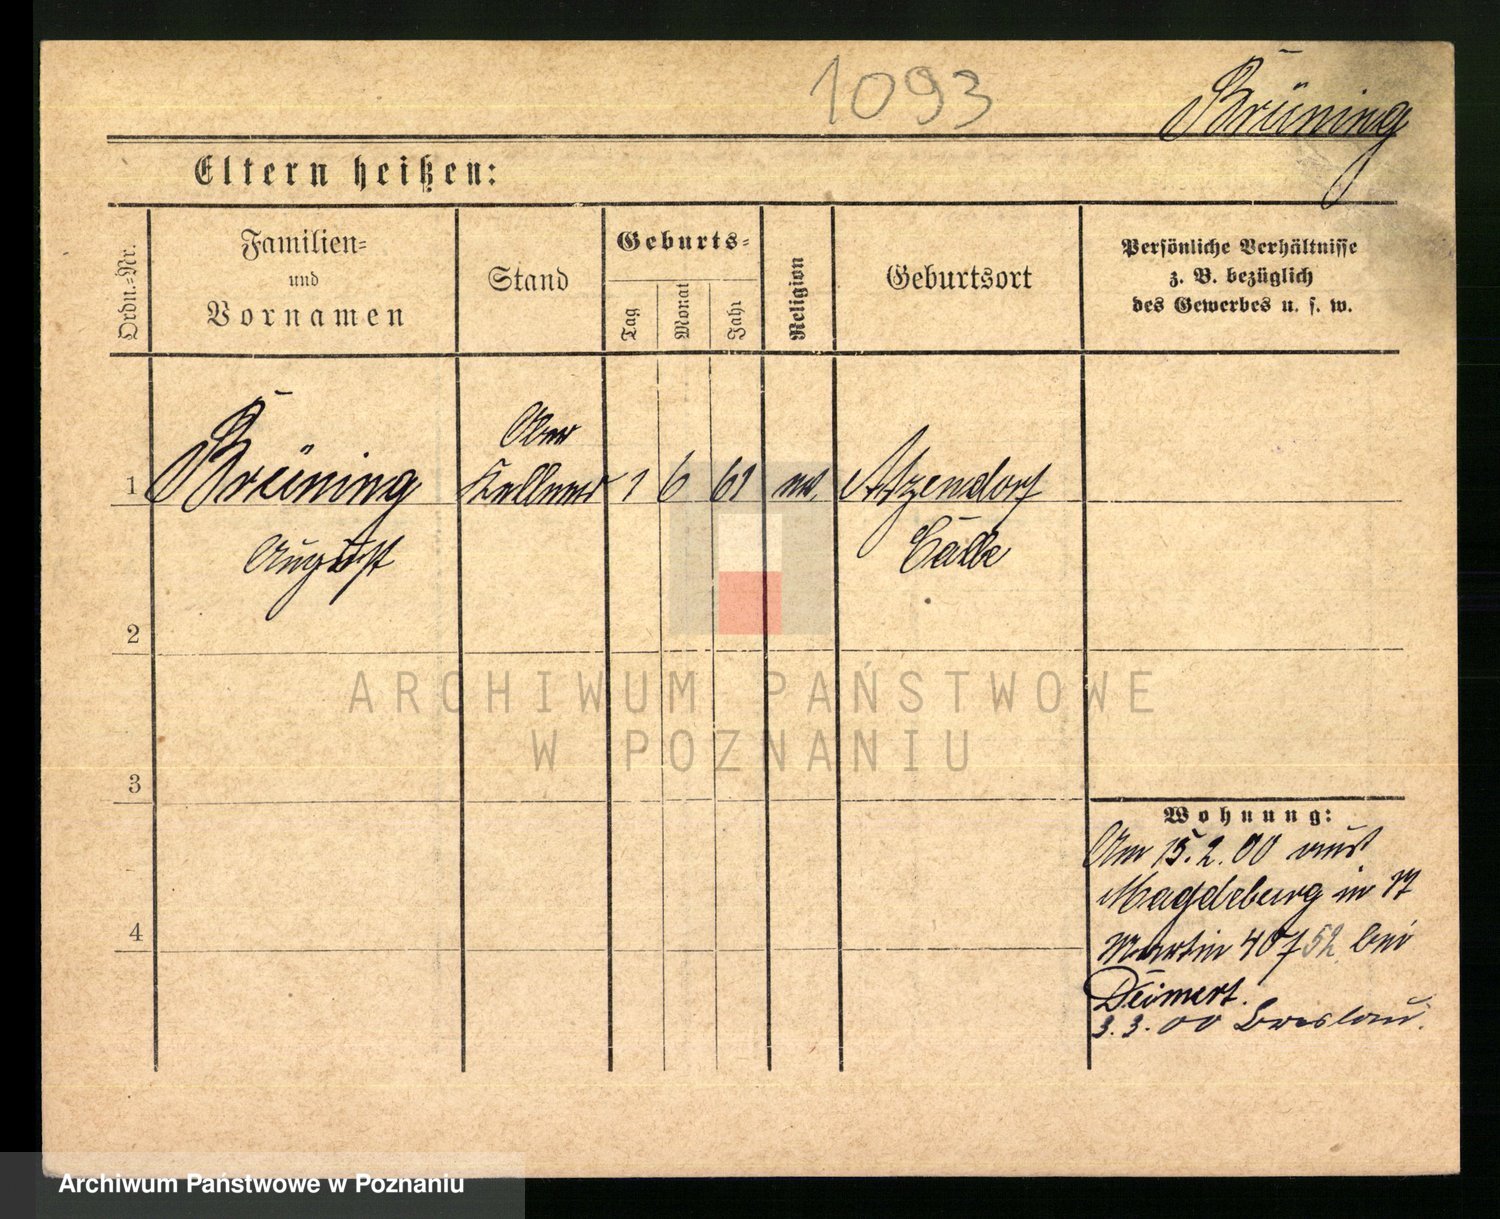 1093
Brüning
Eltern heißen:
Ordn.=Nr.
Familien=
und
Vornamen
Stand
Geburts=
Tag
Monat
Jahr
Religion
Geburtsort
Persönliche Verhältnisse
z. B. bezüglich
des Gewerbes u. s. w.
1
Brüning
August
Ober
Kellner
1 6 61
ev.
Atzendorf
Calbe
2
3
4
ARCHIWUM PAŃSTWOWE
W POZNANIU
Wohnung:
Am 15.2.00 aus
Magdeburg in
Martin 40 52 bei
3.3.00 Breslau.
Archiwum Państwowe w Poznaniu